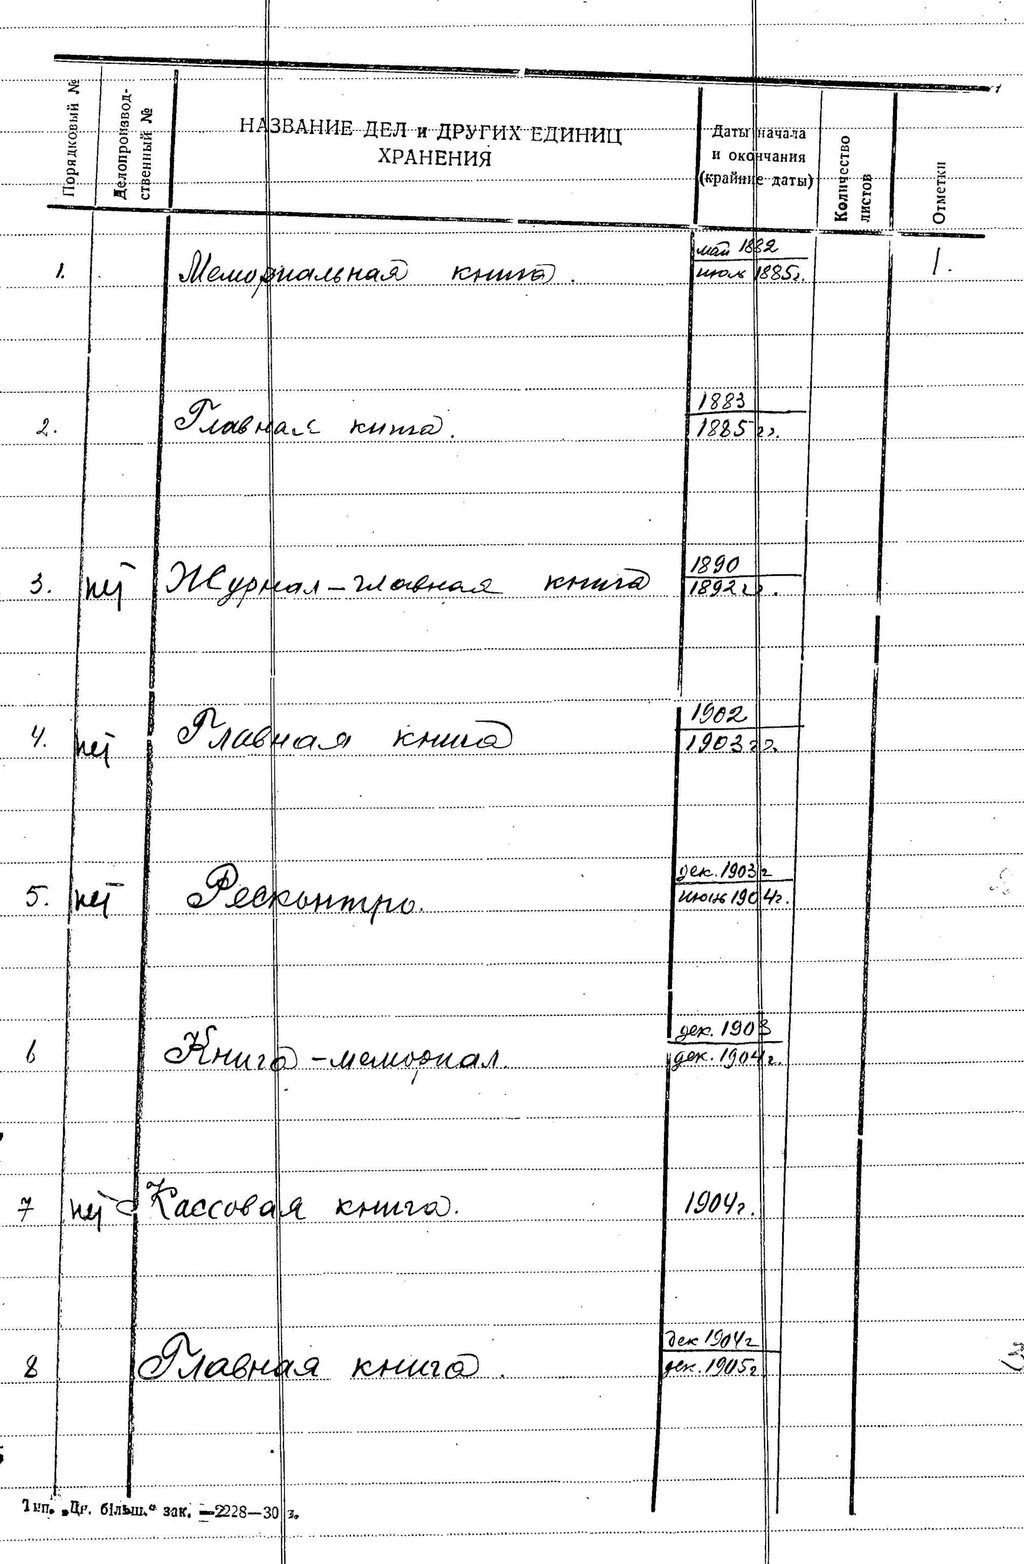 Порядковый №
Делопроизвод-
ственный №
НАЗВАНИЕ ДЕЛ и ДРУГИХ ЕДИНИЦ
ХРАНЕНИЯ
Даты начала
и окончания
(крайние даты)
Количество
листов
Отметки
1. Мемориальная книга. май 1882
июль 1885г. 1.
2. Главная книга. 1883
1885 гг.
3. нет Журнал-главная книга 1890
1892 гг.
4. нет Главная книга 1902
1903 гг.
5. нет Ресконтро. дек. 1903г
июнь 1904г.
6 Книга-мемориал. дек. 1903
дек. 1904г.
7 нет Кассовая книга. 1904г.
8 Главная книга. дек 1904г
дек. 1905г
Тип. „Цр. більш.“ зак. —2228—30 з.